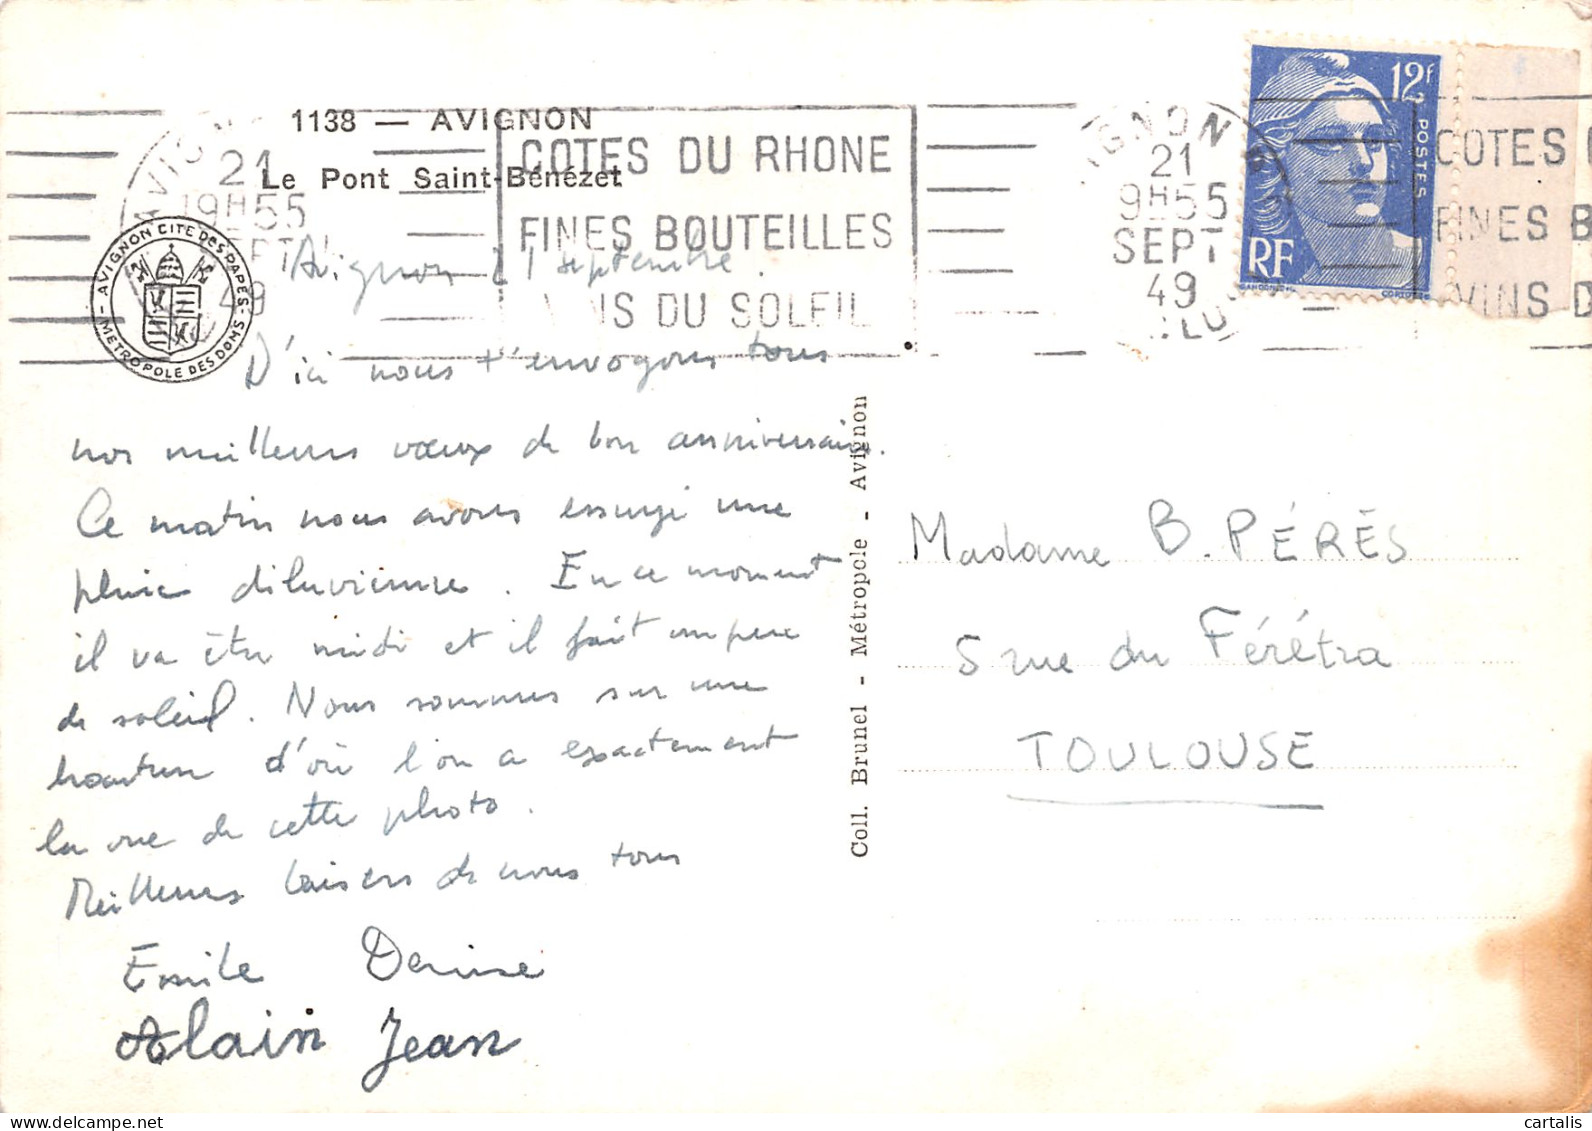 1138 — AVIGNON
Le Pont Saint-Bénézet
AVIGNON
21
19H55
SEPT
49
COTES DU RHONE
FINES BOUTEILLES
VINS DU SOLEIL
IGNON
21
9H55
SEPT
49
12F
POSTES
RF
GANDON
COTES
FINES B
VINS D
AVIGNON CITE DES PAPES
METROPOLE DES DOMS
Avignon 21 septembre.
D'ici nous t'envoyons tous
nos meilleurs vœux de bon anniversaire.
Ce matin nous avons essuyé une
pluie diluvienne. En ce moment
il va être midi et il fait un peu
de soleil. Nous sommes sur une
hauteur d'où l'on a exactement
la vue de cette photo.
Meilleurs baisers de nous tous
Emile Denise
Alain Jean
Coll. Brunel - Métropole - Avignon
Madame B. PÉRÈS
5 rue du Férétra
TOULOUSE
cartalis